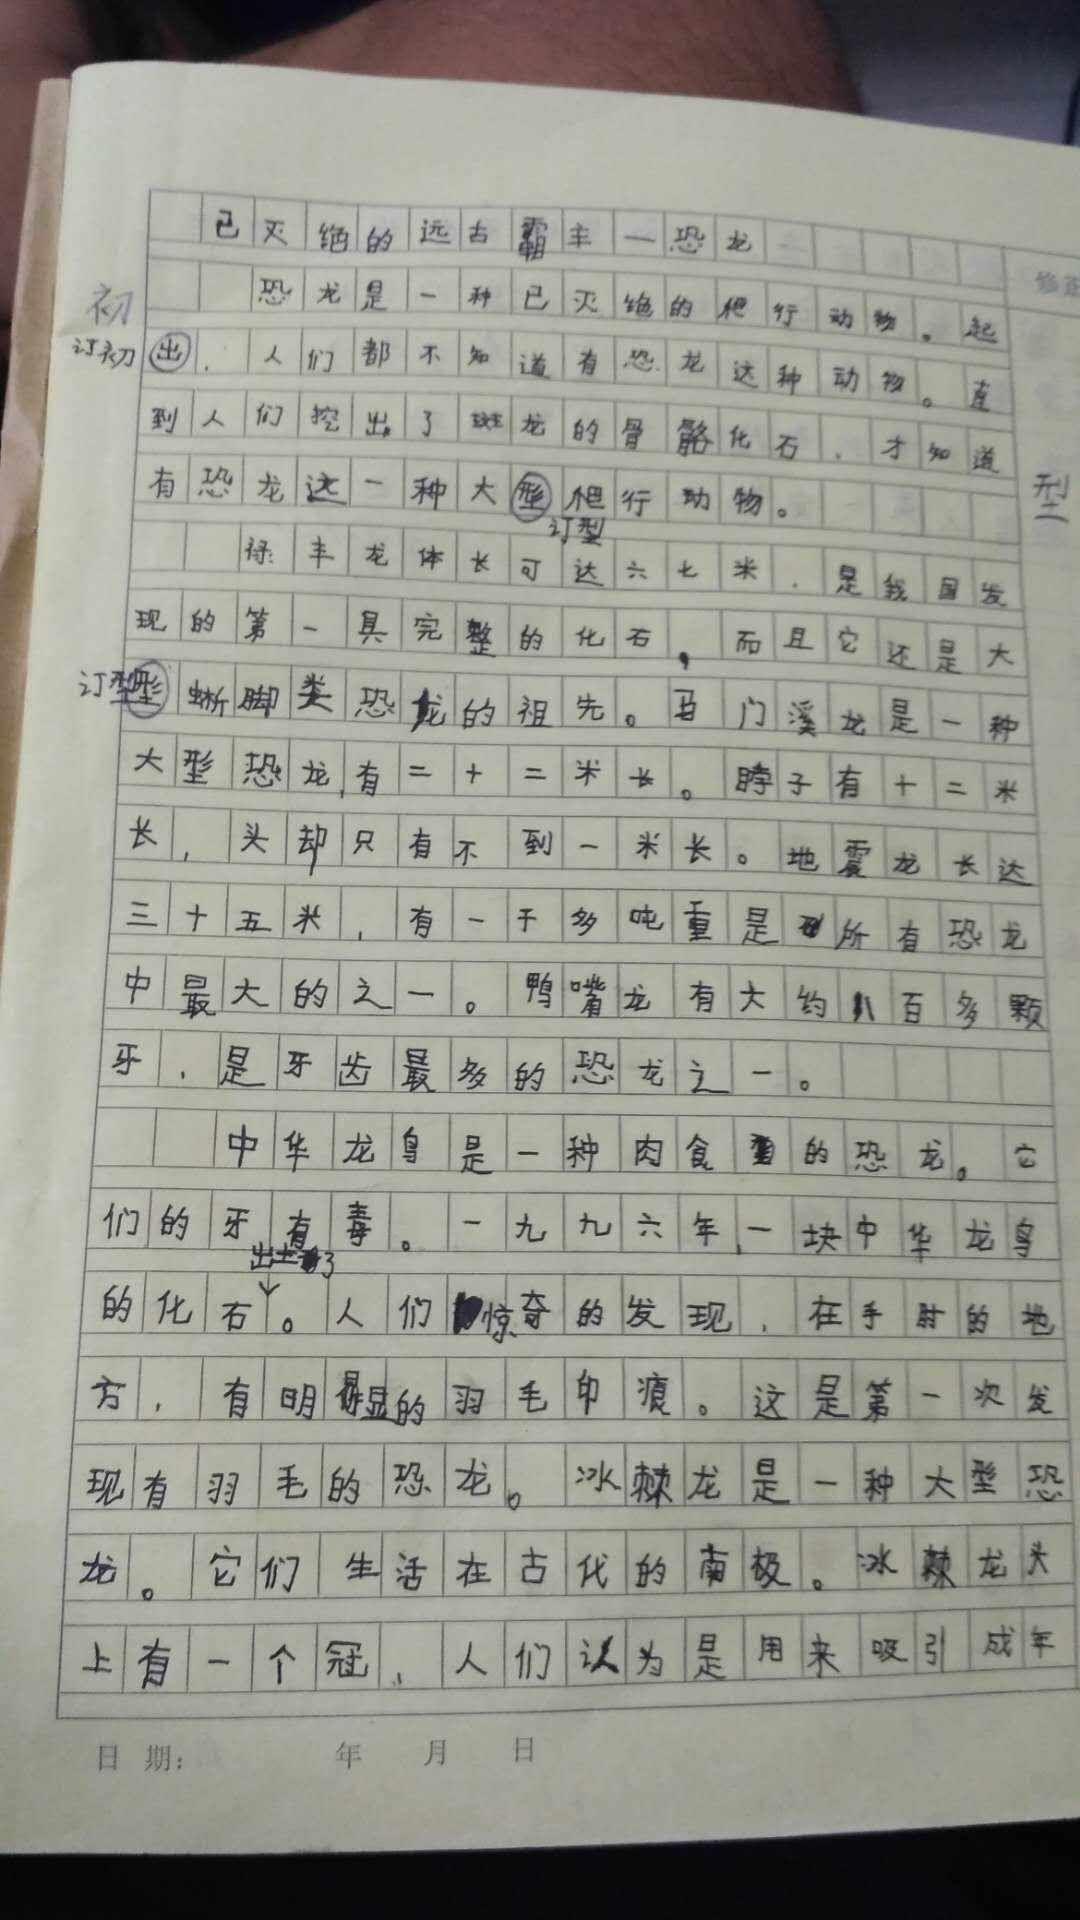 已灭绝的远古霸主一恐龙
修正
恐龙是一种已灭绝的爬行动物。起
初
订初出，人们都不知道有恐龙这种动物。直
到人们挖出了斑龙的骨骼化石，才知道
有恐龙这一种大型爬行动物。
型
订型
禄丰龙体长可达六七米，是我国发
现的第一具完整的化石，而且它还是大
订型形蜥脚类恐龙的祖先。马门溪龙是一种
大型恐龙，有二十二米长。脖子有十二米
长，头却只有不到一米长。地震龙长达
三十五米，有一千多吨重是所有恐龙
中最大的之一。鸭嘴龙有大约八百多颗
牙，是牙齿最多的恐龙之一。
中华龙鸟是一种肉食的恐龙。它
们的牙有毒。一九九六年，一块中华龙鸟
出土了
的化石。人们惊奇的发现，在手肘的地
方，有明显的羽毛印痕。这是第一次发
现有羽毛的恐龙。冰棘龙是一种大型恐
龙。它们生活在古代的南极。冰棘龙头
上有一个冠，人们认为是用来吸引成年
日期： 年 月 日